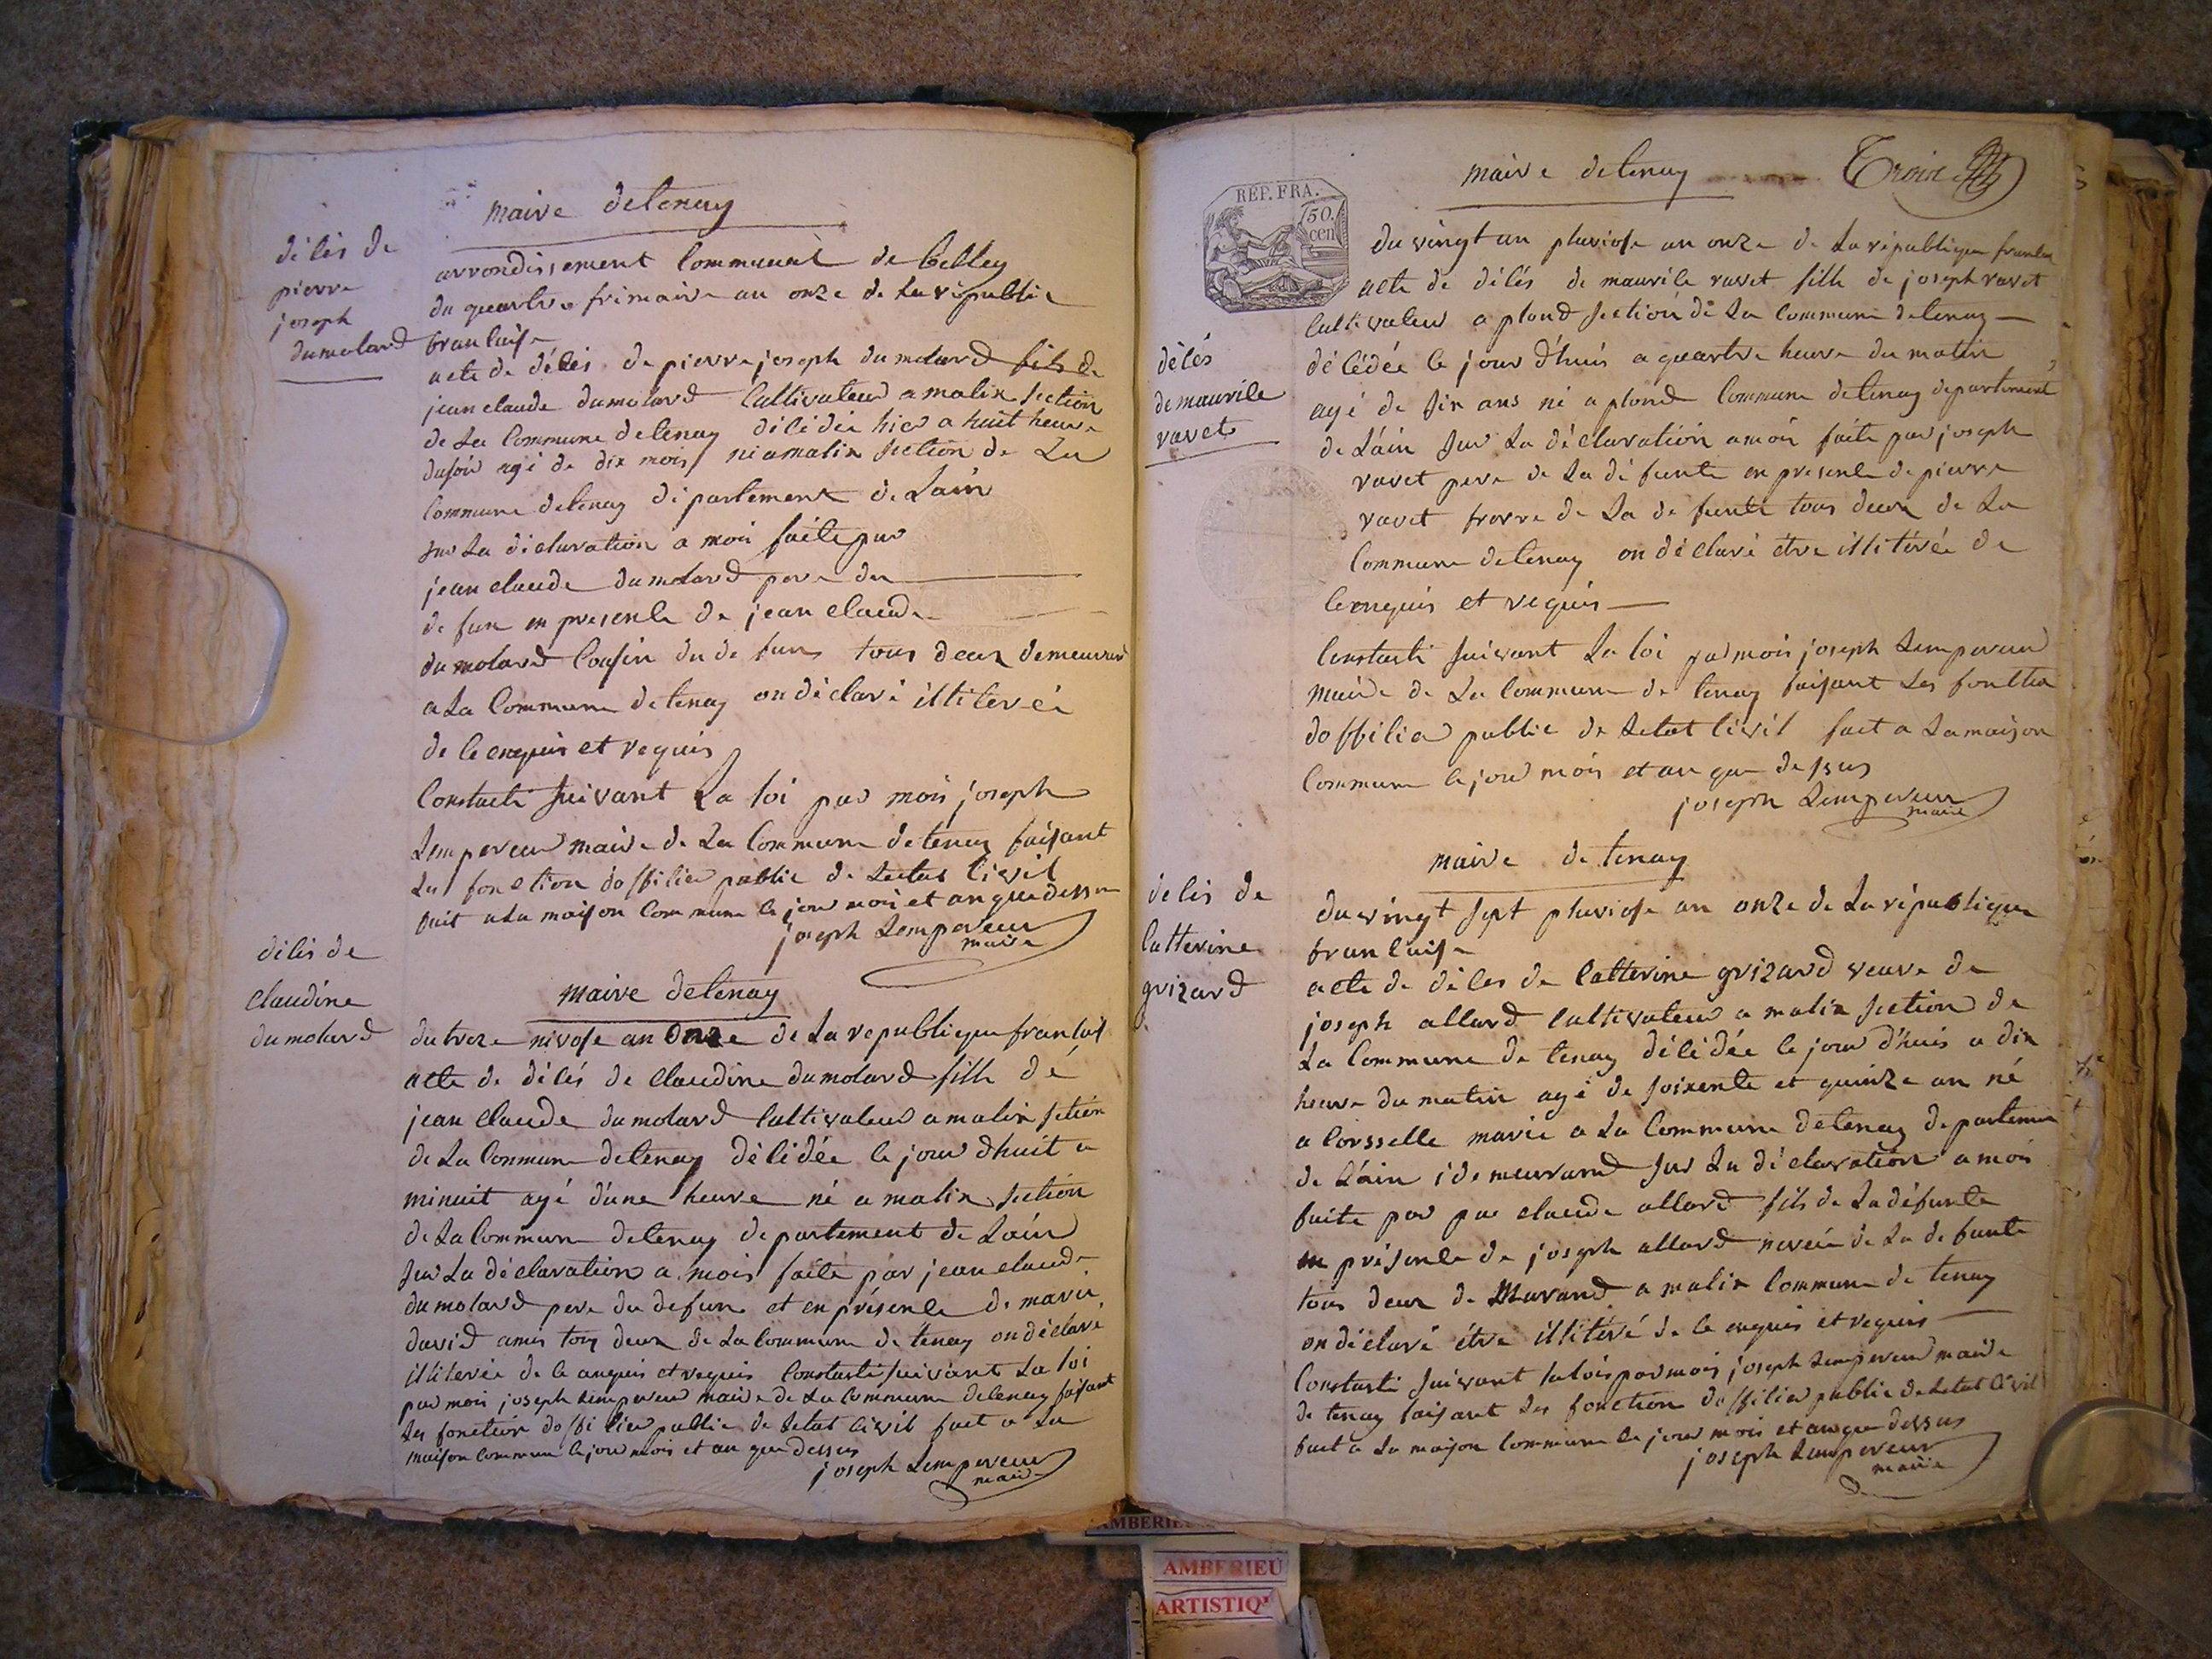 maire de tenay
délés de
pierre
joseph
dumolard
arrondissement Communal de belley
du quartre frimaire an onze de La républic
francaise
acte de délés de pierre joseph dumolard fils de
jean claude dumolard Cultivateur a malix section
de La Commune de tenay décédée hier a huit heure
du soir agé de dix mois né a malix section de La
Commune de tenay département de Lain
sur La déclaration a moi faite par
jean claude dumolard pere du
defun en presence de jean claude
dumolard Cousin du defun tous deux demeurand
a La Commune de tenay on déclaré illiteréé
de ce enquis et requis
Constaté suivant La loi par mois joseph
Lempereur maire de La Commune de tenay faisant
Les fonction dofficier public de Letat Civil
fait a La maison Commune le jour mois et an que dessus
joseph Lempereur
maire
délés de
claudine
dumolard
maire de tenay
du treze nivose an onze de La republique francais
acte de délés de claudine dumolard fille de
jean claude dumolard Cultivateur a malix section
de La Commune de tenay décédée le jour dhuit a
minuit agé d'une heure né a malix section
de La Commune de tenay departement de Lain
sur La déclaration a mois faite par jean claude
dumolard pere du defun et en présence de marie
david amis tous deux de La Commune de tenay on déclaré
illiterée de ce enquis et requis Constaté suivant La loi
par mois joseph Lempereur maire de La Commune de tenay faisant
Les fonction dofficier public de Letat Civil fait a La
maison Commune le jour mois et an que dessus
joseph Lempereur
maire
maire de tenay
REP. FRA.
50.
cen
du vingt un pluviose an onze de La république
acte de délés de ravet fille de joseph ravet
Cultivateur a plond section de La Commune de tenay
délés
ravet
décédée le jour d'huis a quartre heure du matin
agé de six ans né a plond Commune de tenay departement
de Lain sur La déclaration a moi faite par joseph
ravet pere de La défunte en presence de pierre
ravet frere de La defunte tous deux de La
Commune de tenay on déclaré étre illitérée de
ce enquis et requis
Constaté suivant La loi par mois joseph Lempereur
maire de La Commune de tenay faisant Les
dofficier public de Letat Civil fait a La maison
Commune le jour mois et an que dessus
joseph Lempereur
maire
maire de tenay
delés de
Catterine
grizard
du vingt sept pluviose an onze de La république
francaise
acte de délés de Catterine grizard veuve de
joseph allard Cultivateur a malix section de
La Commune de tenay décédée le jour d'huis a dix
heure du matin agé de soixente et quinze an né
a Corsselle marié a La Commune de tenay departement
de Lain i demeurand sur La déclaration a moi
faite par par claude allard fils de La défunte
en présence de joseph allard neveu de La defunte
tous deux de Murand a malix Commune de tenay
on déclaré étre illitéré de ce enquis et requis
Constaté suivant La loi par mois joseph Lempereur maire
de tenay faisant Les fonction dofficier public de Letat Civil
fait a La maison Commune le jour mois et an que dessus
joseph Lempereur
maire
AMBERIEU
ARTISTIQ